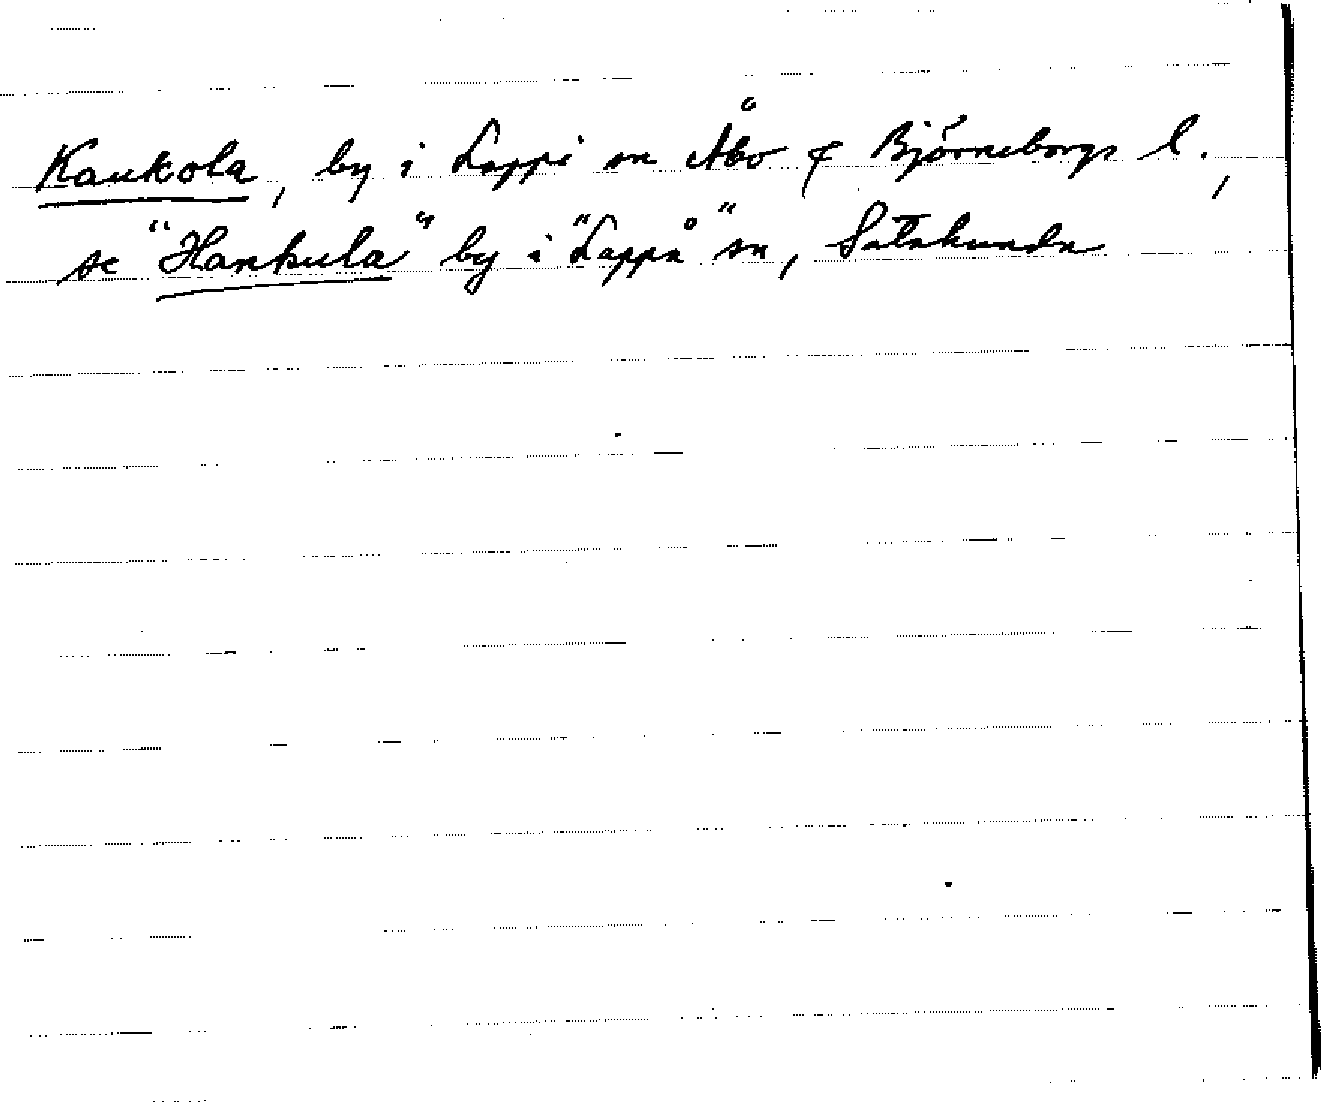 Kaukola, by i Lappi sn Åbo & Björneborgs l.,
se "Haukula" by i "Lappå" sn, Satakunda